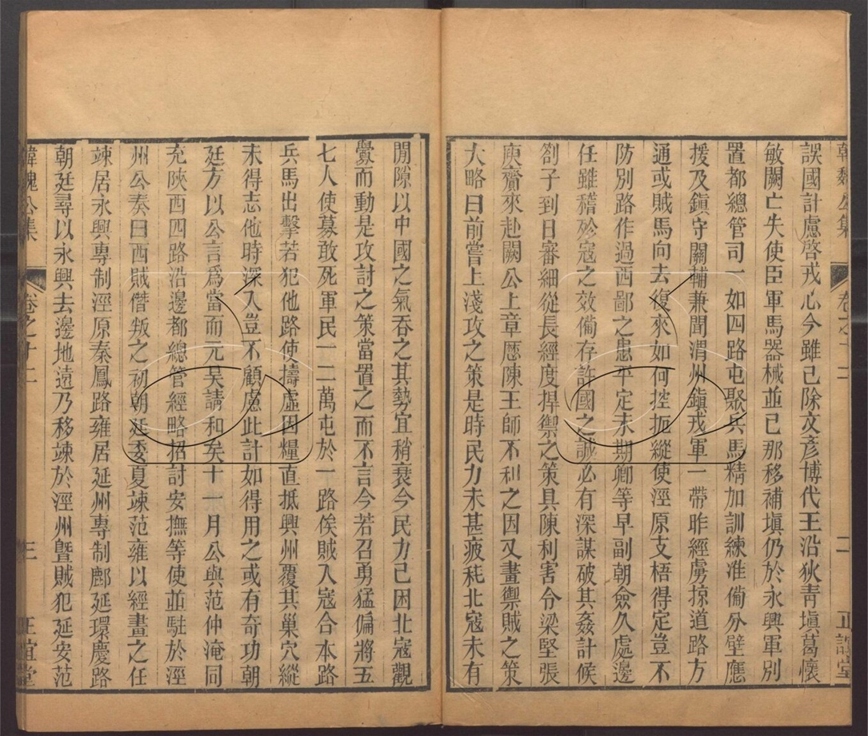 誤國計慮啓戎心今雖已除文彥博代王沿狄青塡葛懷
敏闕亡失使臣軍馬器械並已那移補塡仍於永興軍別
置都總管司一如四路屯聚兵馬精加訓練准備外壁應
援及鎭守關輔兼聞渭州鎭戎軍一帶昨經虜掠道路方
通或賊馬向去復來如何控扼縱使涇原支梧得定豈不
防別路作過西鄙之患平定未期卿等早副朝僉久處邊
任雖稽殄寇之效備存許國之誠必有深謀破其姦計候
劄子到日審細從長經度捍禦之策具陳利害令梁堅張
庾齎來赴闕公上章歷陳王師不利之因又畫禦賊之策
大略曰前嘗上淺攻之策是時民力未甚疲秏北寇未有
韓魏公集
卷之十二
二
正誼堂
閒隙以中國之氣吞之其勢宜稍衰今民力已困北寇觀
釁而動是攻討之策當置之而不言今若召勇猛偏將五
七人使募敢死軍民一二萬屯於一路俟賊入寇合本路
兵馬出擊若犯他路使擣虛因糧直抵興州覆其巢穴縱
未得志他時深入豈不顧慮此計如得用之或有奇功朝
廷方以公言爲當而元昊請和矣十一月公與范仲淹同
充陝西四路沿邊都總管經略招討安撫等使並駐於涇
州公奏曰西賊僭叛之初朝廷委夏竦范雍以經畫之任
竦居永興專制涇原秦鳳路雍居延州專制鄜延環慶路
朝廷尋以永興去邊地遠乃移竦於涇州曁賊犯延安范
韓魏公集
卷之十二
三
正誼堂